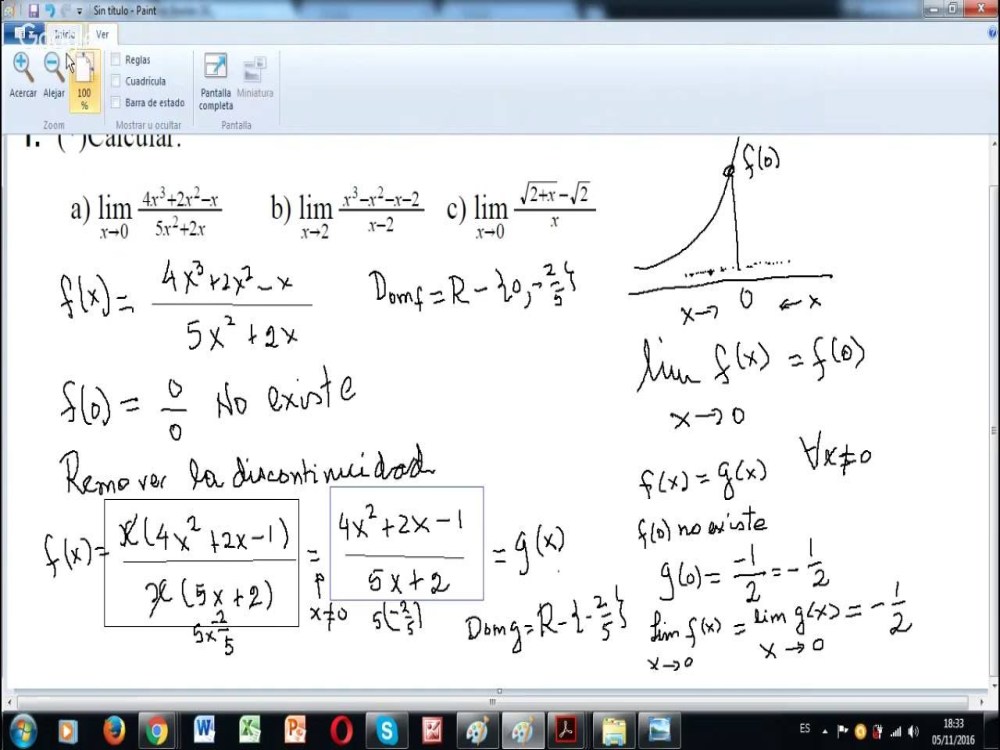 Sin título - Paint
Google
Inicio Ver
Acercar Alejar 100 %
Zoom
Reglas
Cuadrícula
Barra de estado
Mostrar u ocultar
Pantalla completa Miniatura
Pantalla
1. (*)Calcular:
a) lim x→0 (4x³+2x²−x)/(5x²+2x) b) lim x→2 (x³−x²−x−2)/(x−2) c) lim x→0 (√2+x −√2)/x
f(x) = (4x³+2x²−x)/(5x²+2x) Domf = R − {0, −2/5}
f(0) = 0/0 No existe
Remover la discontinuidad
f(x) = x(4x²+2x−1)/x(5x+2) = (4x²+2x−1)/(5x+2) = g(x)
x≠0
5x −2/5
5(−2/5)
Domg = R − {−2/5}
f(0)
x→ 0 ←x
lim f(x) = f(0)
x→0
f(x) = g(x) ∀x≠0
f(0) no existe
g(0) = −1/2 = −1/2
lim f(x) = lim g(x) = −1/2
x→0 x→0
ES 18:33
05/11/2016